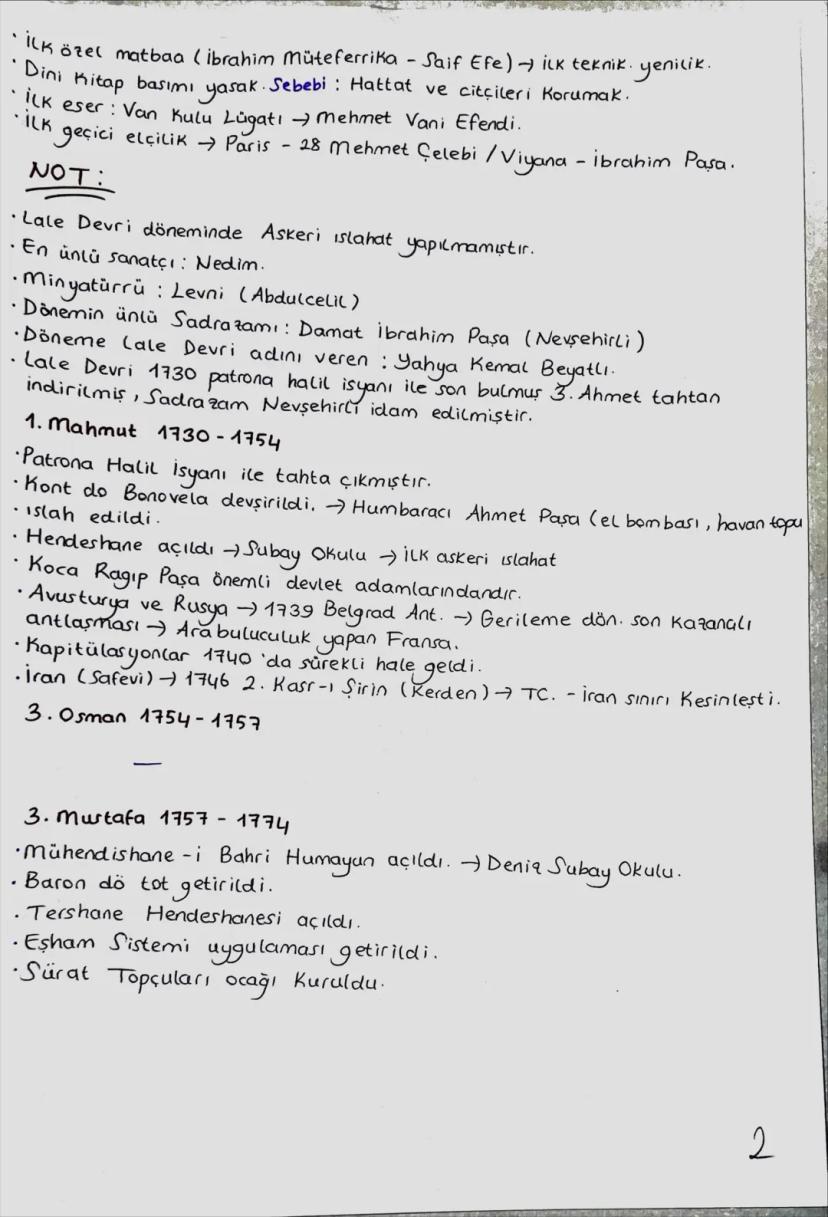 · İlk özel matbaa (İbrahim Müteferrika - Saif Efe) → ilk teknik. yenilik.
· Dini kitap basımı yasak. Sebebi : Hattat ve citçileri Korumak.
· İlk eser : Van Kulu Lügatı → Mehmet Vani Efendi.
· İlk geçici elçilik → Paris - 28 Mehmet Çelebi / Viyana - İbrahim Paşa.
NOT :
· Lale Devri döneminde Askeri ıslahat yapılmamıştır.
· En ünlü sanatçı : Nedim.
· Minyatürrü : Levni (Abdulcelil)
· Dönemin ünlü Sadrazamı : Damat İbrahim Paşa (Nevşehirli)
· Döneme Lale Devri adını veren : Yahya Kemal Beyatlı.
· Lale Devri 1730 patrona halil isyanı ile son bulmuş 3. Ahmet tahtan
indirilmiş, Sadrazam Nevşehirli idam edilmiştir.
1. Mahmut 1730 - 1754
· Patrona Halil İsyanı ile tahta çıkmıştır.
· Kont do Bonovela devşirildi. → Humbaracı Ahmet Paşa (el bombası, havan topu
· ıslah edildi.
· Hendeshane açıldı → Subay Okulu → İlk askeri ıslahat
· Koca Ragıp Paşa önemli devlet adamlarındandır.
· Avusturya ve Rusya → 1739 Belgrad Ant. → Gerileme dön. son Kazançlı
antlaşması → Arabuluculuk yapan Fransa.
· Kapitülasyonlar 1740 'da sürekli hale geldi.
· İran (Safevi) → 1746 2. Kasr-ı Şirin (Kerden) → TC. - İran sınırı Kesinleşti.
3. Osman 1754 - 1757
—
3. Mustafa 1757 - 1774
· Mühendishane -i Bahri Humayun açıldı. → Deniz Subay Okulu.
· Baron dö tot getirildi.
· Tershane Hendeshanesi açıldı.
· Eşham Sistemi uygulaması getirildi.
· Sürat Topçuları ocağı Kuruldu.
2